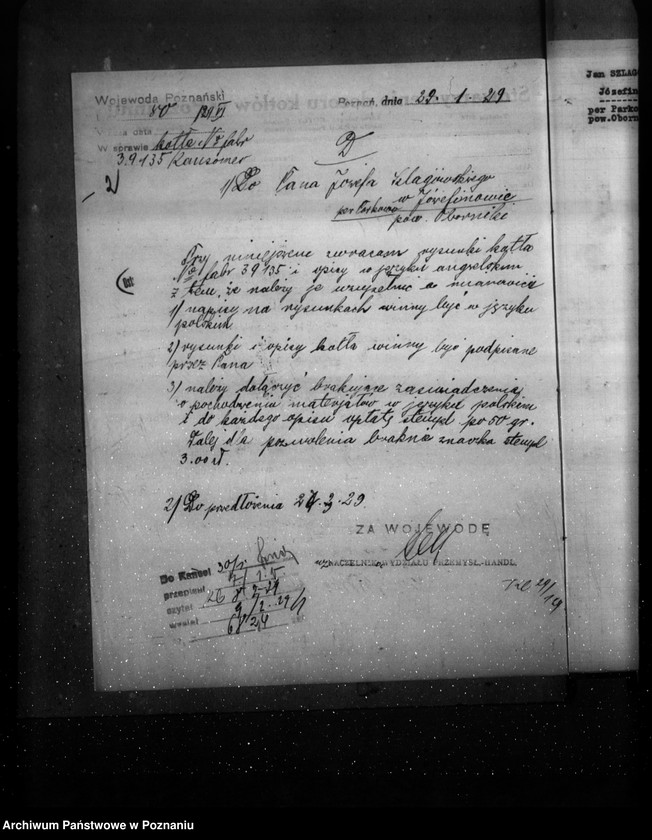 Wojewoda Poznański
Poznań, dnia 29. 1. 29
80 /29 VI
dnia
W sprawie kotła Nr fabr
39135 Ransomes
D
2)
1) Do Pana Józefa Szlagowskiego
w Józefinowie
per Parkowo pow. Oborniki
Przy niniejszem zwracam rysunki kotła
Nr fabr 39135 i opisy w języku angielskim
z tem, że należy je uzupełnić a mianowicie
1) napisy na rysunkach winny być w języku
polskim
2) rysunki i opisy kotła winny być podpisane
przez Pana
3) należy dołączyć brakujące zaświadczenia
o pochodzeniu materjałów w języku polskim
i do każdego opisu opłatę stempl po 50 gr.
Dalej dla pozwolenia braknie znaczka stempl
3.00 zł.
2) Do przedłożenia 3.29
ZA WOJEWODĘ
NACZELNIK WYDZIAŁU PRZEMYSŁ.-HANDL.
Do Kancel 30/1
przepisał
czytał
wysłał 9/2. 29
Jan SZLAG
Józefin
per Parko
pow.Oborn
Archiwum Państwowe w Poznaniu